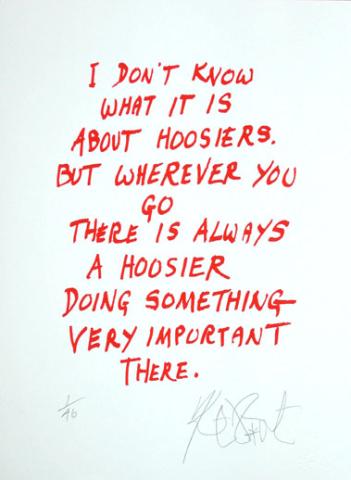 I DON'T KNOW
WHAT IT IS
ABOUT HOOSIERS.
BUT WHEREVER YOU
GO
THERE IS ALWAYS
A HOOSIER
DOING SOMETHING
VERY IMPORTANT
THERE.